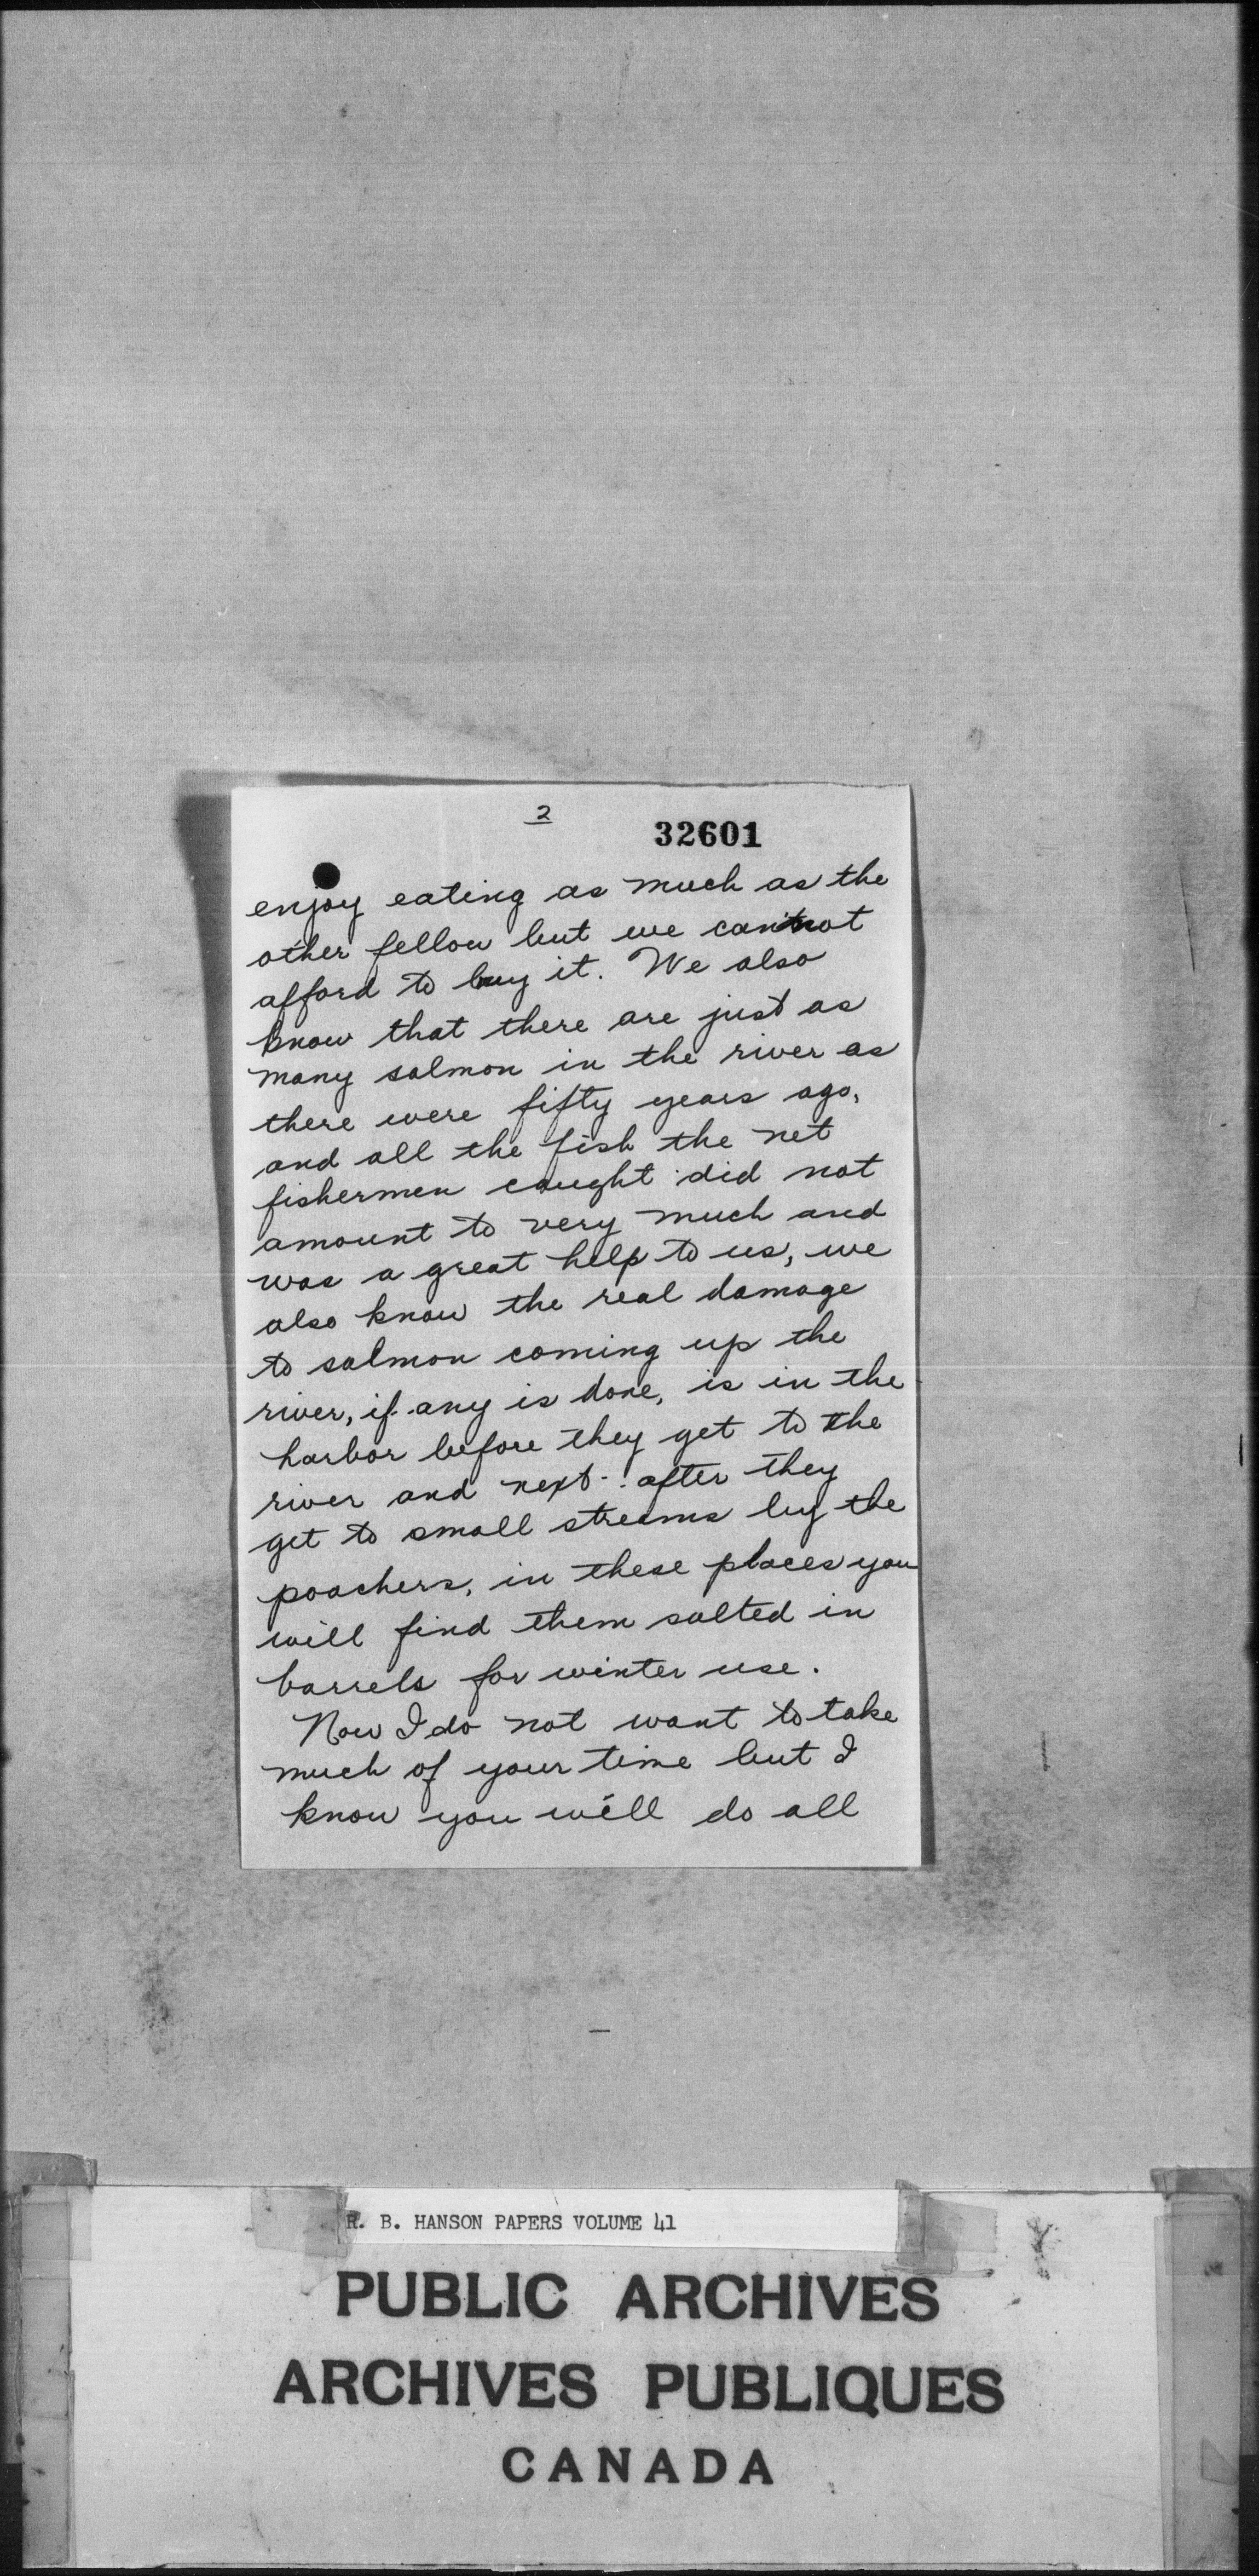 2
32601
enjoy eating as much as the
other fellow but we cannot
afford to buy it. We also
know that there are just as
many salmon in the river as
there were fifty years ago,
and all the fish the net
fishermen caught did not
amount to very much and
was a great help to us, we
also know the real damage
to salmon coming up the
river, if any is done, is in the
harbor before they get to the
river and next after they
get to small streams by the
poachers, in these places you
will find them salted in
barrels for winter use.
Now I do not want to take
much of your time but I
know you will do all
R. B. HANSON PAPERS VOLUME 41
PUBLIC ARCHIVES
ARCHIVES PUBLIQUES
CANADA